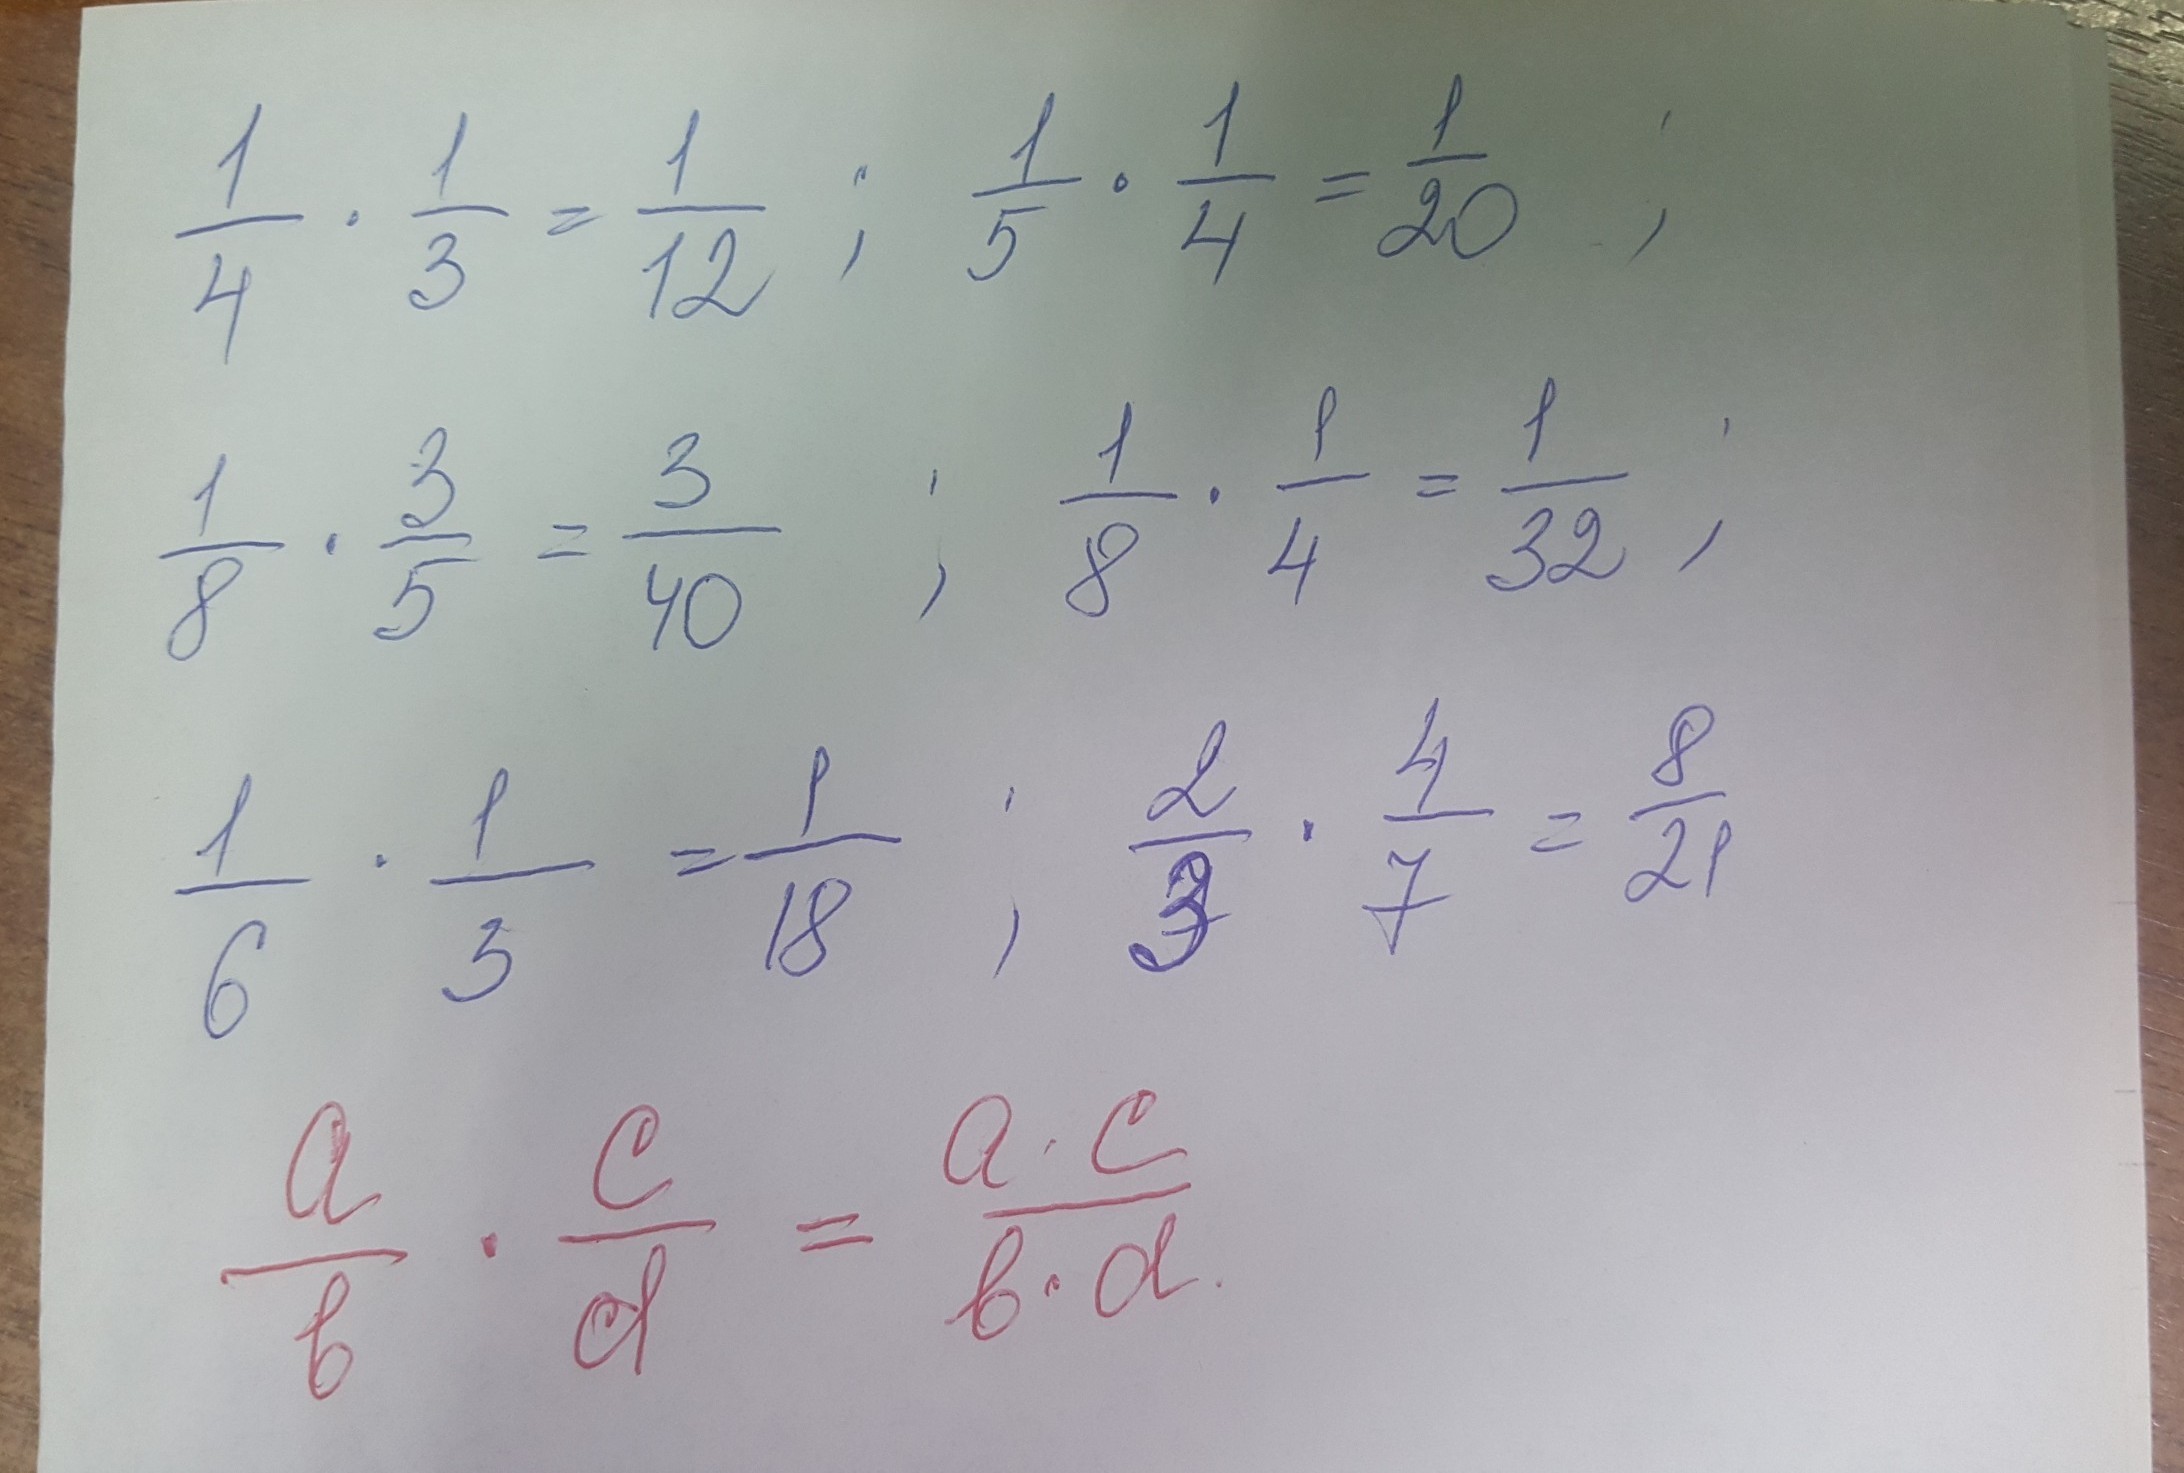 1/4 · 1/3 = 1/12 ; 1/5 · 1/4 = 1/20 ;
1/8 · 3/5 = 3/40 ; 1/8 · 1/4 = 1/32 ;
1/6 · 1/3 = 1/18 ; 2/3 · 4/7 = 8/21
a/b · c/d = a · c/b · d.